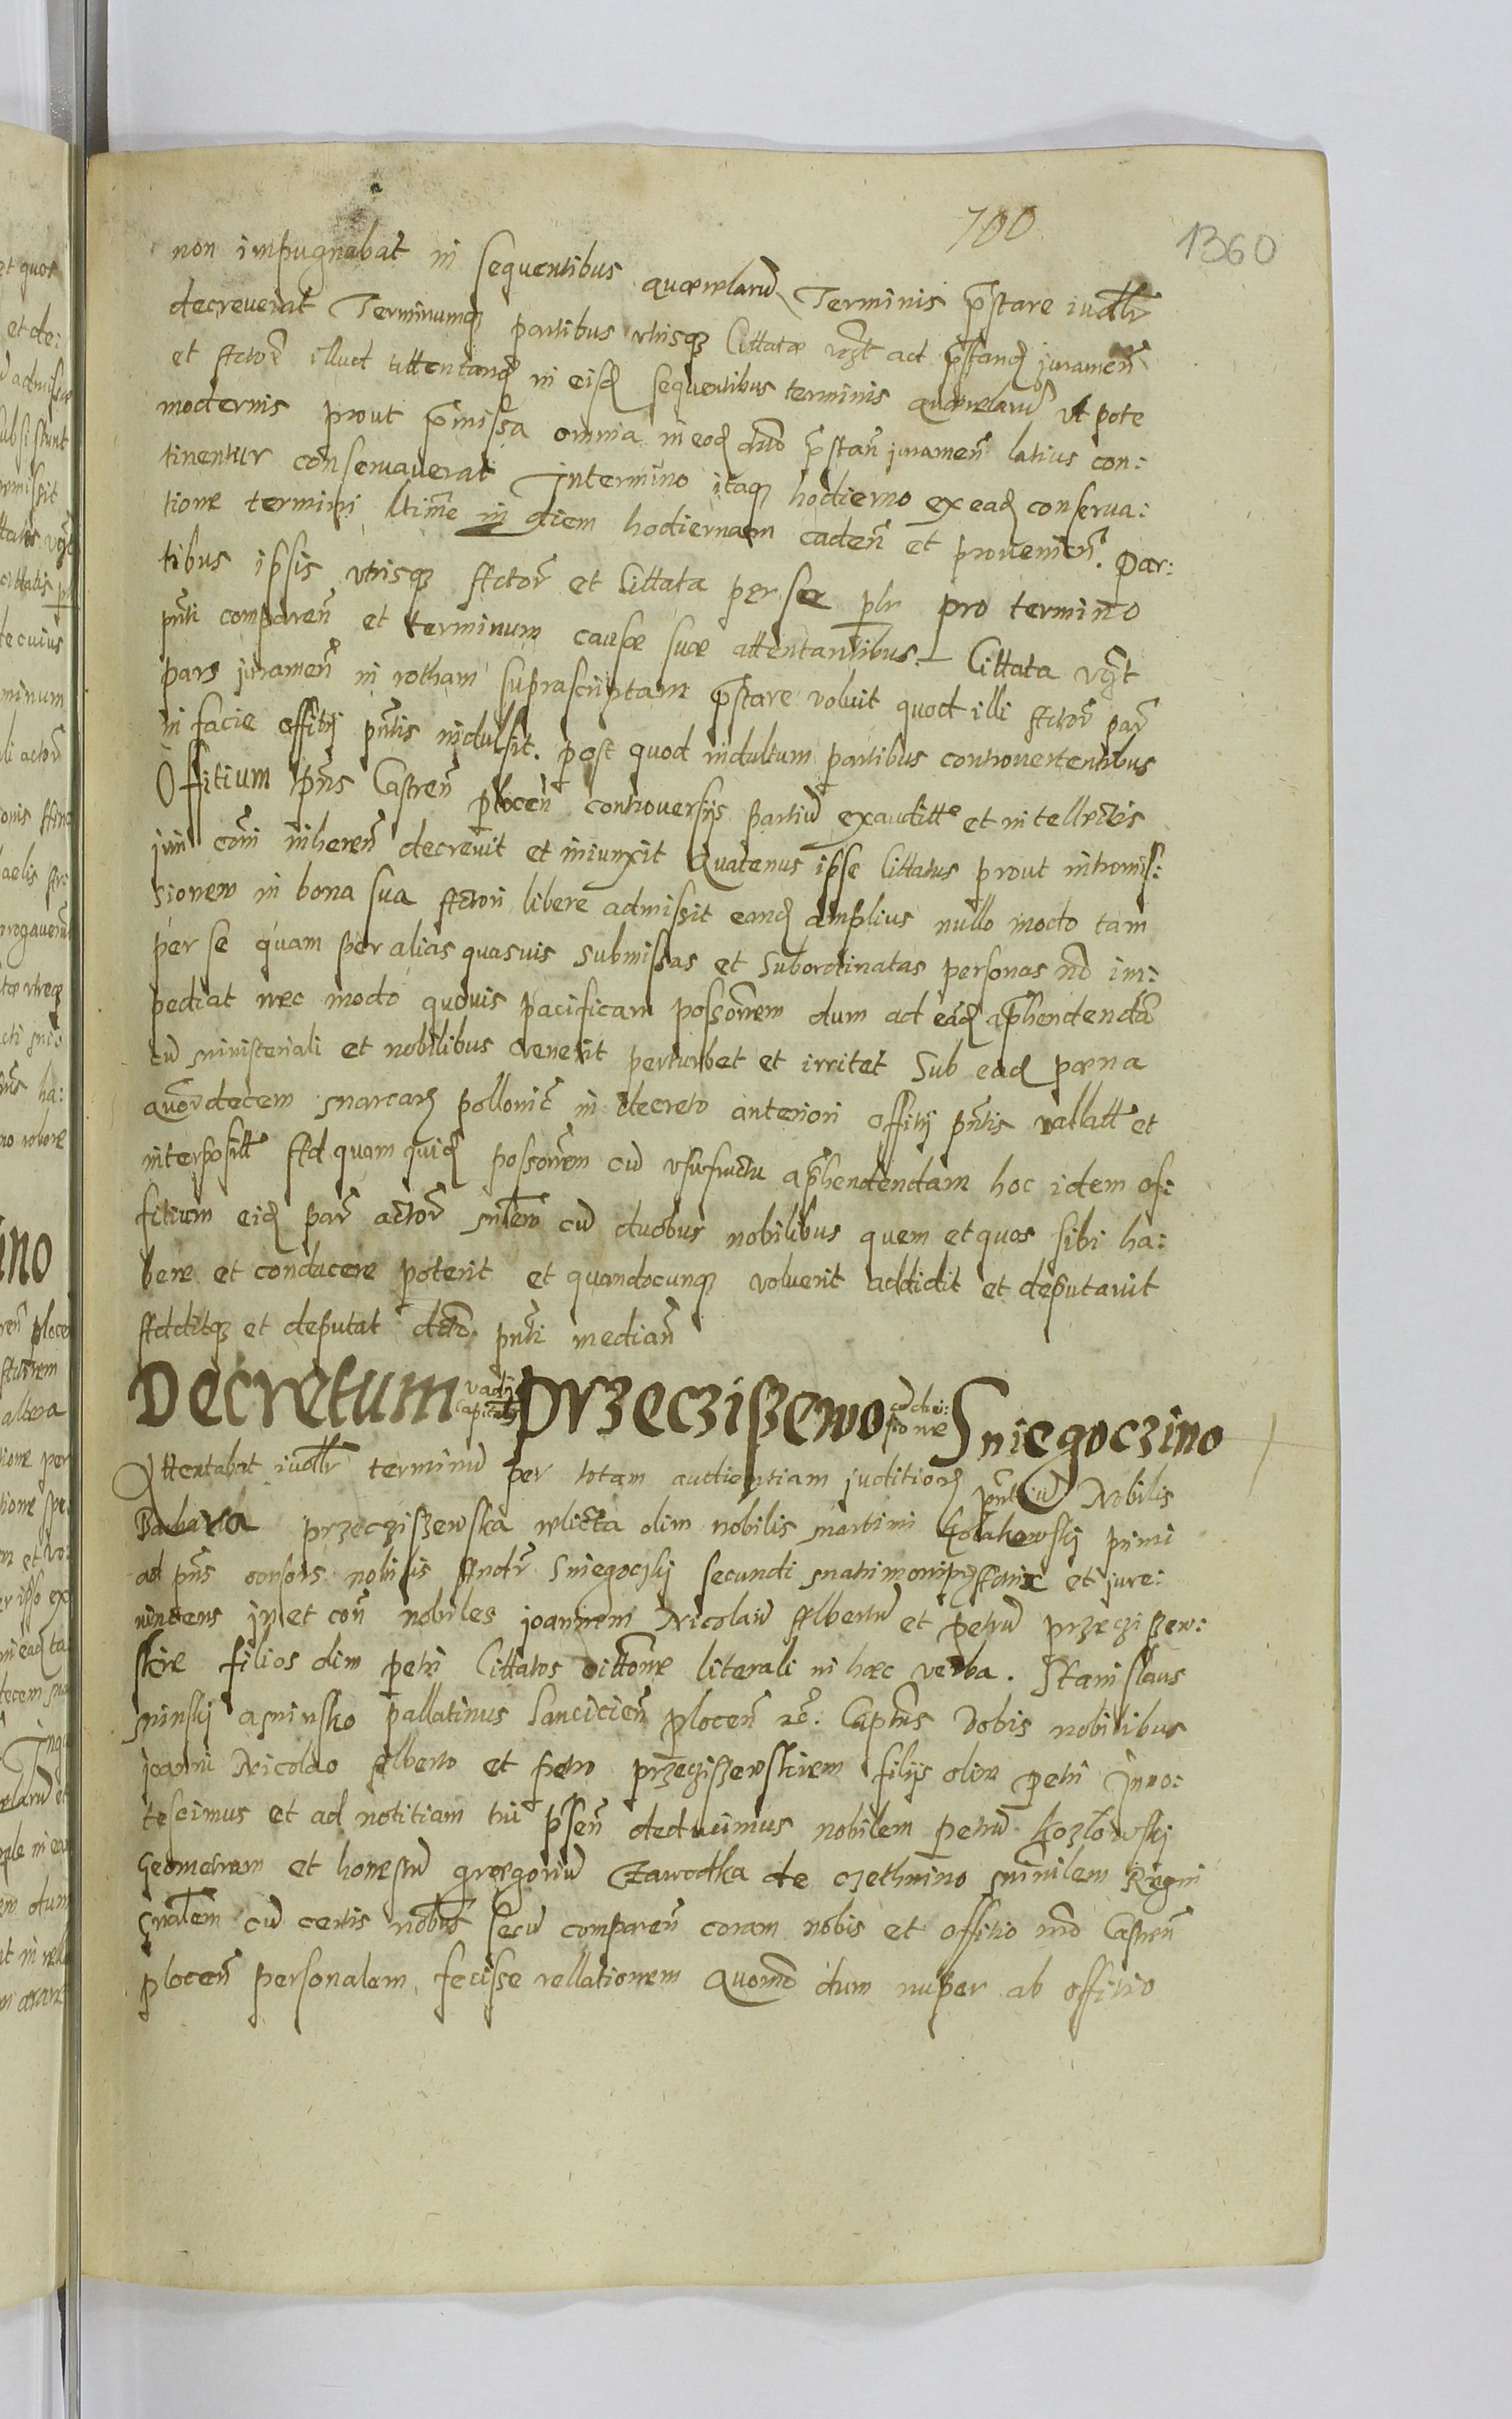 700
1360
non impugnabat in sequentibus querelarũ Terminis p̃stare iudllr
decreverat Terminumq̃ partibus vtrisq̃ Cittatæ vg̃t ad p̃stand̃ juramen̄
et Actor̃ illud attentand̃ in eisd̃ sequentibus terminis querelarũ vt pote
modernis prout p̃missa omnia in eod̃ dũo p̃stan̄ juramen̄ latius con:
tinentur conservaverat Intermino itaq̃ hodierno ex ead̃ conserva:
tione termini ltime in diem hodiernam caden̄ et provenien̄. Par:
tibus ipsis vtrisq̃ Actor̃ et Cittata per se plr pro termino
pñti comparen̄ et terminum causæ suæ attentantibus. Cittata vg̃t
pars juramen̄ in rotham suprascriptam p̃stare voluit quod illi Actor̃ par̃
in facie offitij pñtis indulsit. post quod indultum partibus controvertentibus
Offitium p̃ns Castren̄ plocen̄ controversijs partiũ exauditte et intellectis
juri cõni inheren̄ decrevit et iniunxit Quatenus ipse Cittatus prout intromis:
sionem in bona sua Actori libere admissit eand̃ amplius nullo modo tam
per se quam per alias quasvis submissas et subordinatas personas nõ im:
pediat nec modo quovis pacificam possonem dum ad ead̃ ap̃hendendã
cũ ministeriali et nobilibus venerit perturbet et irritet Sub ead̃ pæna
quordecem marcar̃ pollonic̃ in decreto anteriori offitij pñtis vallatt et
interpositt Ad quam quid̃ possonem cũ vsufructu ap̃hendendam hoc idem of:
fitium eid̃ par̃ actor̃ mlem cũ duobus nobilibus quem et quos sibi ha:
bere et conducere poterit et quandocunq̃ voluerit addidit et deputavit
Additq̃ et deputat dẽto pñti median̄
Decretum vadij capitalis Przecziszewo cũ divi: sione Sniegoczino
Attentabat iudllr terminũ per totam audientiam juditior̃ pñtiũ Nobilis
Barbara przecziszewska relicta olim nobilis martini Kołakowskj primi
ad p̃ns consors nobilis Andr̃ Sniegoczkj secundi matrimonior̃ Actrix et jure:
vincens in et con̄ nobiles joannem Nicolaũ Albertũ et petrũ przecziszew:
skie filios olim petri Cittatos cittone literali in hæc verba. Stanislaus
minskj a minsko pallatinus Lancicien̄ plocen̄ &c. Captñs Vobis nobilibus
joanni Nicolao Alberto et petro przecziszewskiem filijs olim petri Inno:
tescimus et ad notitiam tũi p̃sen̄ deducimus nobilem petrũ Kozłowskj
Geometram et honestũ gregoriũ Zawodka de czethnino minilem Regni
gñalem cũ certis nobus secũ comparen̄ coram nobis et offitio nrõ Castren̄
plocen̄ personalem fecisse rellationem Quomõ dum nuper ab offitio